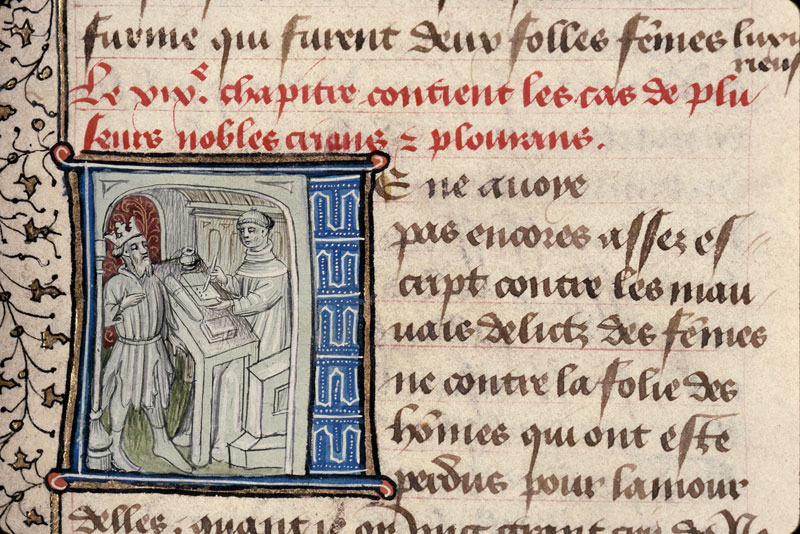 furme qui furent deux folles fẽmes luxu
rieus
Le xix.e chapitre contient les cas de plu
seurs nobles crians ⁊ plourans.
E ne avoye
pas encores assez es
cript contre les mau
vais delictz des fẽmes
ne contre la folie des
hõmes qui ont este
perdus pour lamour
delles, quant ie grant